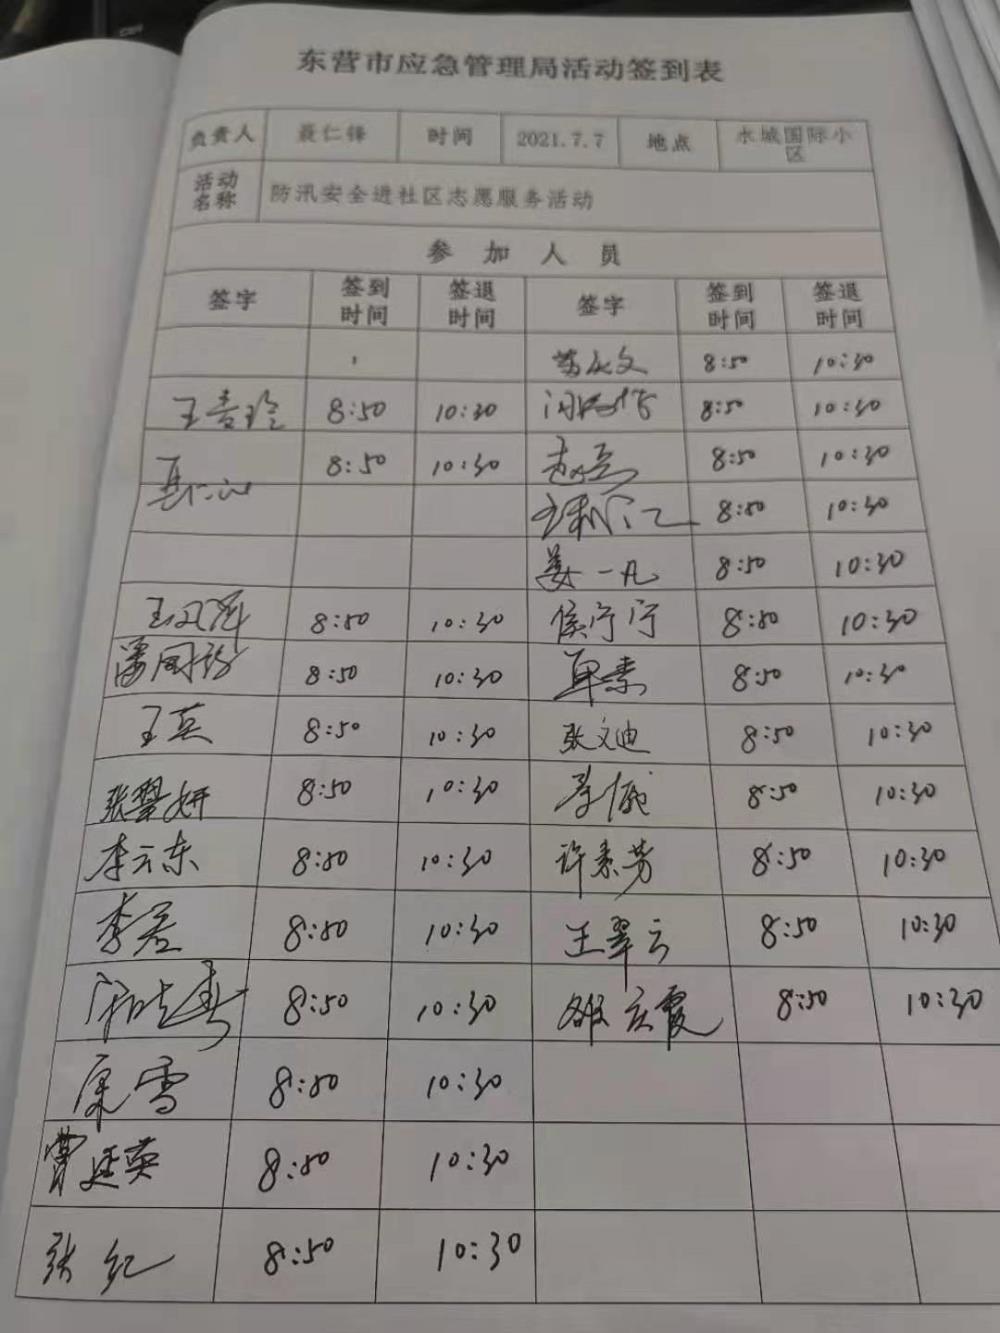 东营市应急管理局活动签到表
负责人 聂仁锋 时间 2021.7.7 地点 水城国际小区
活动名称 防汛安全进社区志愿服务活动
参加人员
签字 签到时间 签退时间 签字 签到时间 签退时间
8:50 10:30
8:50 10:30 8:50 10:30
8:50 10:30 8:50 10:30
8:50 10:30
姜一凡 8:50 10:30
8:50 10:30 侯宁宁 8:50 10:30
8:50 10:30 单素 8:50 10:30
王英 8:50 10:30 张文迪 8:50 10:30
8:50 10:30 8:50 10:30
李云东 8:50 10:30 许素芳 8:50 10:30
李君 8:50 10:30 王翠云 8:50 10:30
8:50 10:30 8:50 10:30
康雪 8:50 10:30
曹廷英 8:50 10:30
张红 8:50 10:30